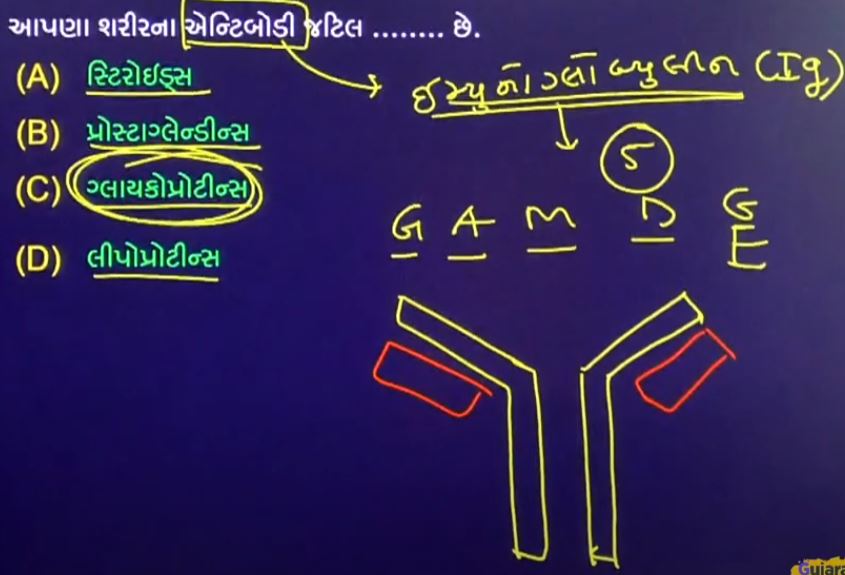 આપણા શરીરના એન્ટિબોડી જટિલ ........ છે.
(A) સ્ટિરોઇડ્સ
(B) પ્રોસ્ટાગ્લેન્ડીન્સ
(C) ગ્લાયકોપ્રોટીન્સ
(D) લીપોપ્રોટીન્સ
ઈમ્યુનોગ્લોબ્યુલીન (Ig)
5
G A M D G
E